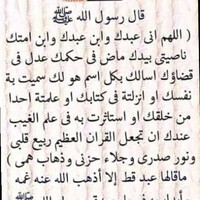 قال رسول الله ﷺ
( اللهم انى عبدك وابن عبدك وابن امتك
ناصيتي بيدك ماض فى حكمك عدل فى
قضاؤك اسالك بكل اسم هو لك سميت به
نفسك او انزلتة فى كتابك او علمتة احدا
من خلقك او استاثرت به فى علم الغيب
عندك ان تجعل القرآن العظيم ربيع قلبى
ونور صدرى وجلاء حزنى وذهاب همى )
ماقالها عبد قط إلا أذهب الله عنه غمه